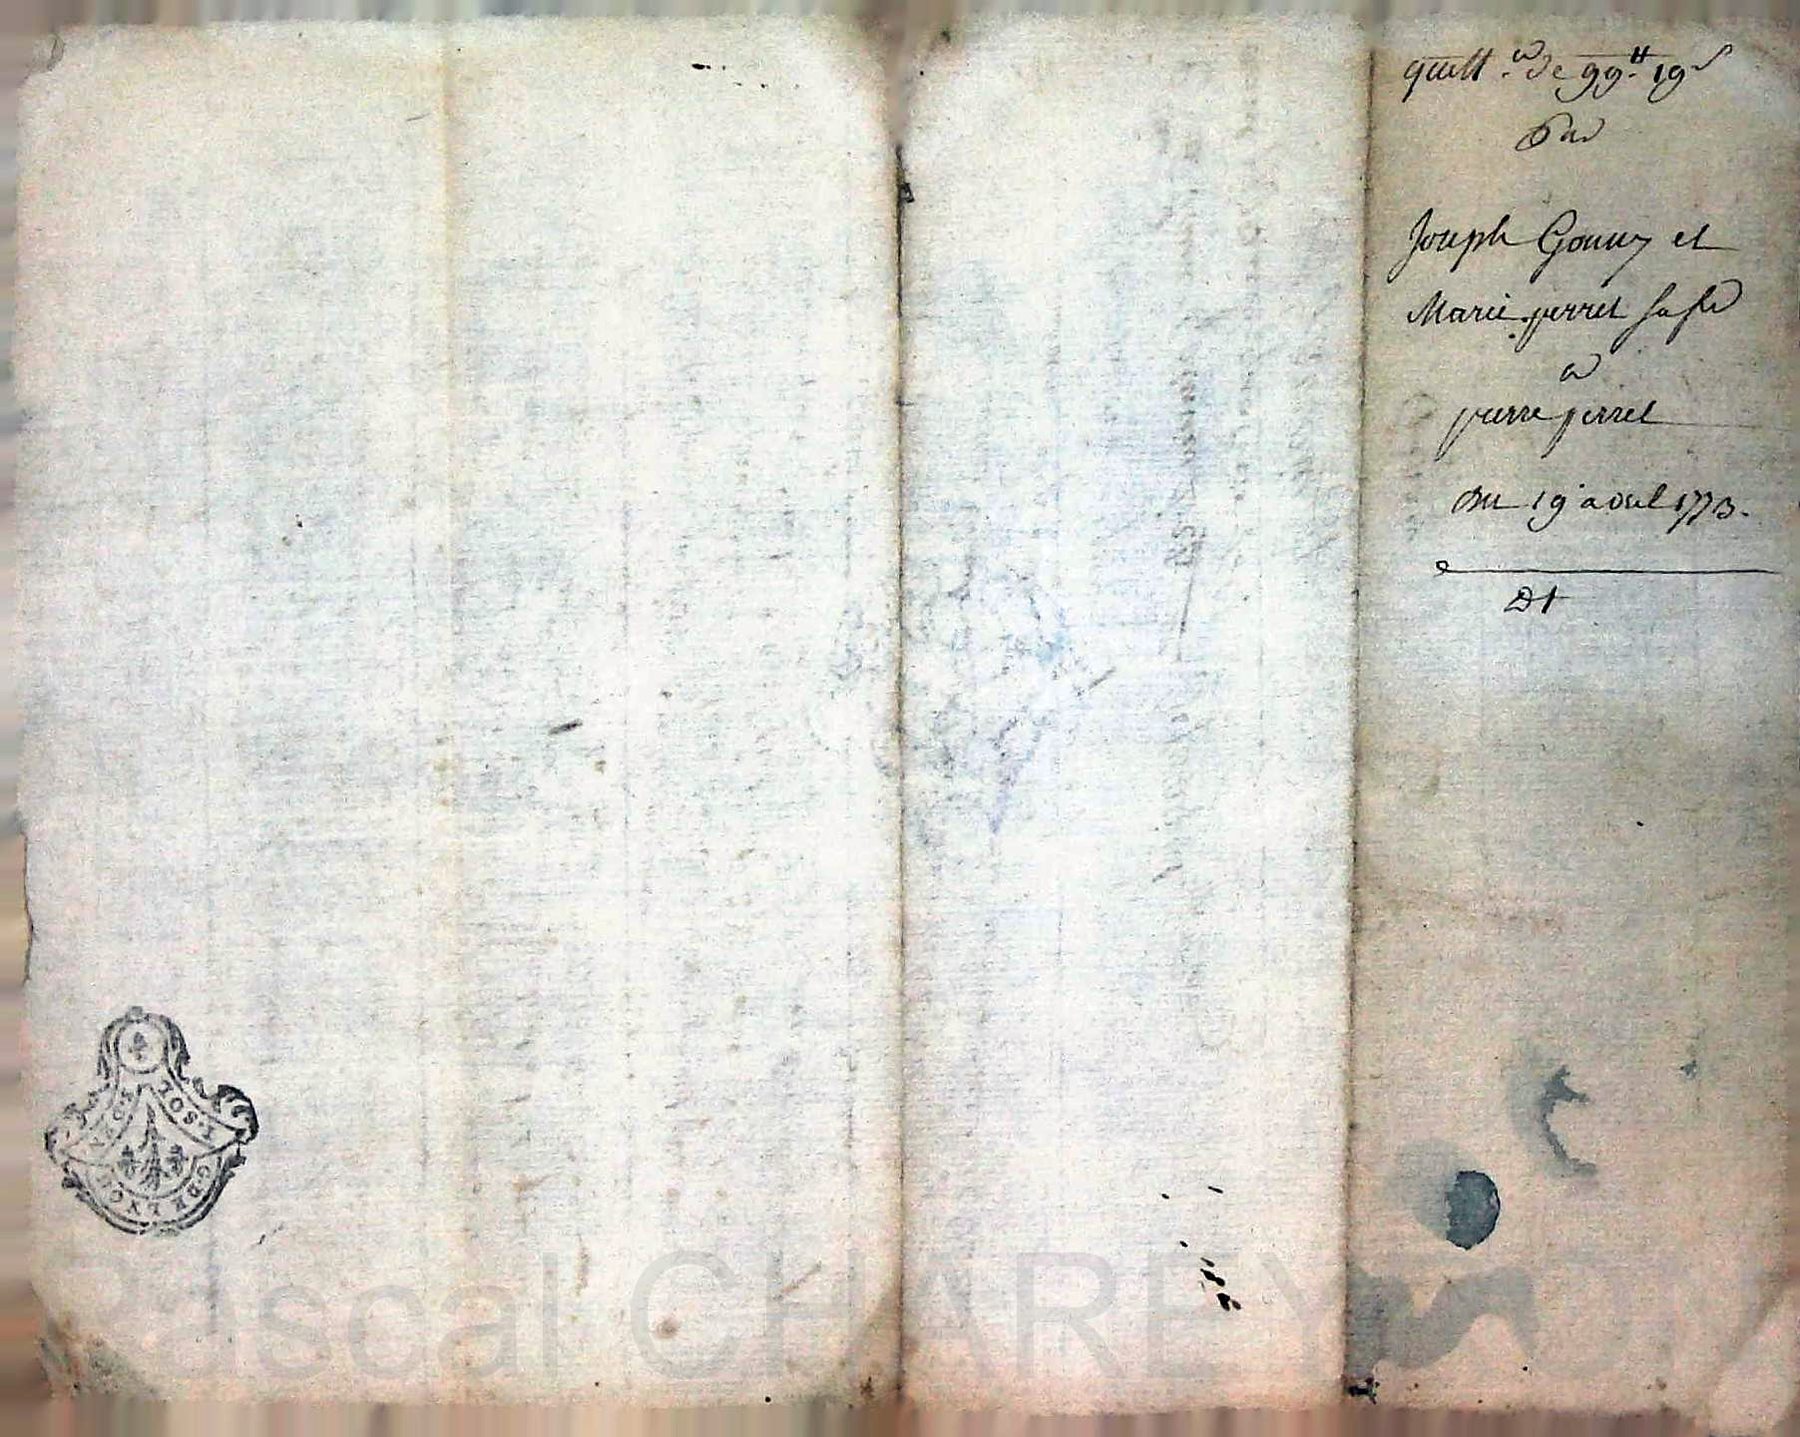 quitt.ce de 99tt 19s
Par
Joseph Gonny et
Marie perret sa fe
a
pierre perret
Du 19e avril 1773.
Dt
GDE LYON
Pascal CHAREYRON